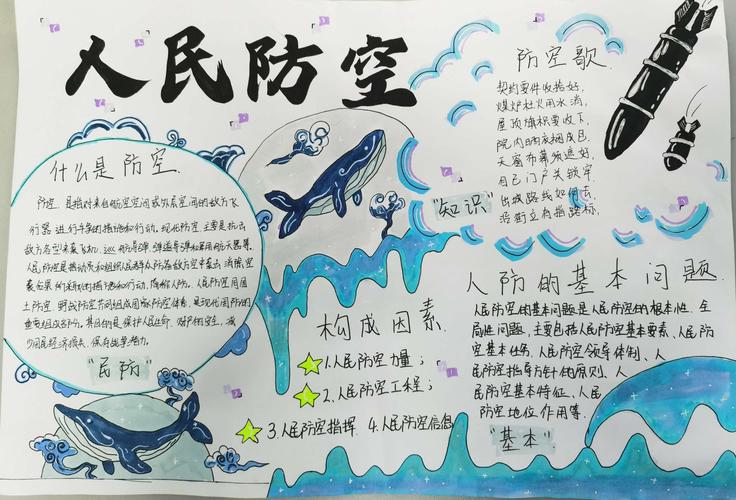 人民防空
什么是防空
防空，是指对来自航空空间或外层空间的敌方飞
行器进行斗争的措施和行动。现代防空主要是抗击
敌方各型来袭飞机、巡航导弹、弹道导弹和军用航天器等。
人民防空是动员和组织人民群众防备敌方空中袭击、消除空
袭后果的措施和行动，简称人防。人民防空同国
土防空、野战防空共同组成国家防空体系，是现代国防的
重要组成部分。其目的是保护人民生命、财产的安全，减
少国民经济损失，保存战争潜力。
"民防"
构成因素
1.人民防空力量；
2.人民防空工程；
3.人民防空指挥 4.人民防空信息
防空歌
煤炉灶火用水浇，
屋顶旗标要收下，
院内晒衣捆成包，
天窗布幕须遮好，
自己门户关锁牢，
出城路线如何去，
沿街立有指路标，
"知识"
人防的基本问题
人民防空的基本问题是人民防空的根本性、全
局性问题，主要包括人民防空基本要素、人民防
空基本任务、人民防空领导体制、人
民防空指导方针和原则、人
民防空基本特征、人民
防空地位作用等。
"基本"